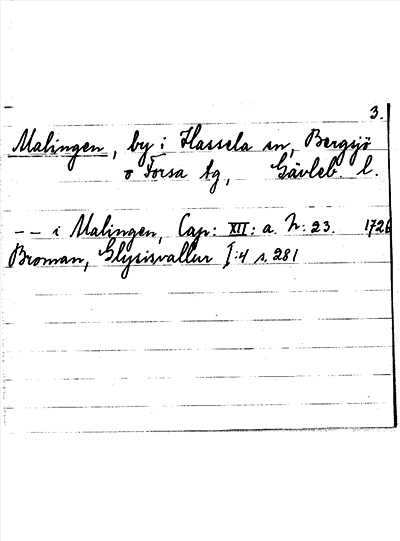 3.
Malingen, by i Hassela sn, Bergsjö
o Forsa tg, Gävleb. l.
-- i Malingen, Cap: XII: a. N: 23. 1726
Broman, Glysisvallur I:4 s. 281